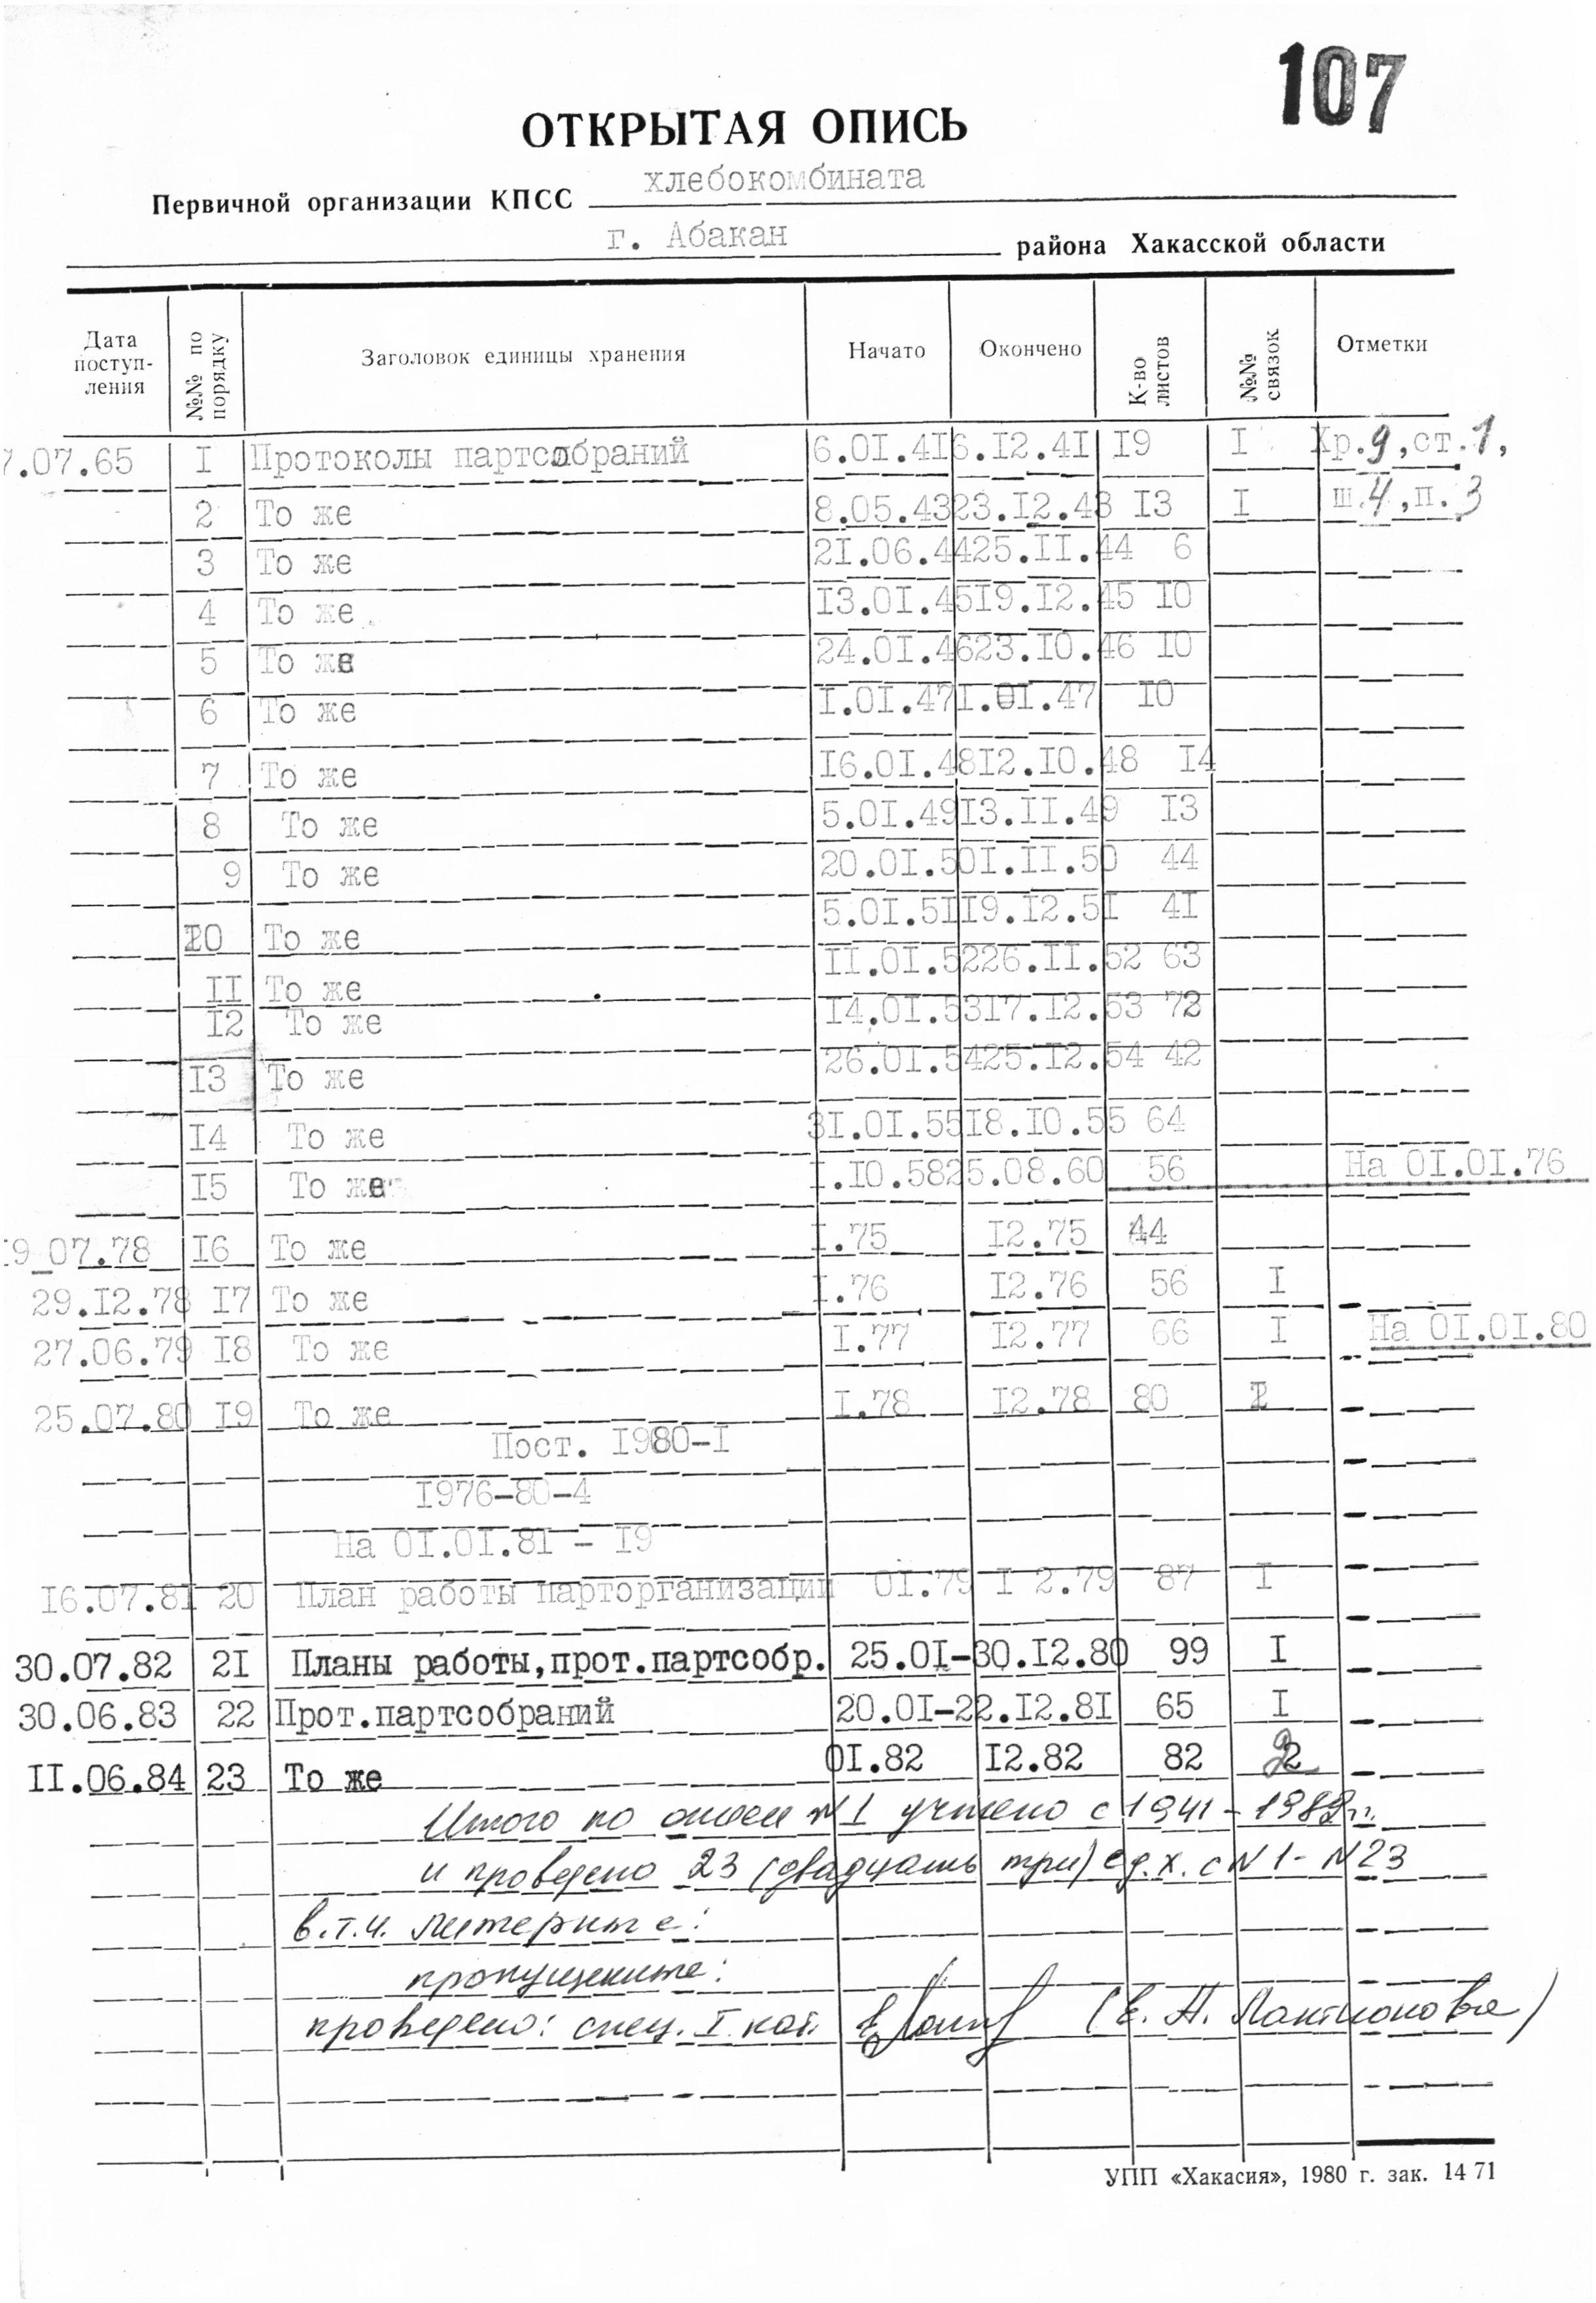 107
ОТКРЫТАЯ ОПИСЬ
Первичной организации КПСС хлебокомбината
г. Абакан района Хакасской области
Дата поступ-ления №№ по порядку Заголовок единицы хранения Начато Окончено К-во листов №№ связок Отметки
7.07.65 I Протоколы партсобраний 6.01.41 6.12.41 I9 I Хр.9,ст.1,
2 То же 8.05.43 23.I2.43 I3 I ш.4,п.3
3 То же 2I.06.44 25.II.44 6
4 То же I3.0I.45 I9.I2.45 I0
5 То же 24.0I.46 23.I0.46 I0
6 То же I.0I.47 I.0I.47 I0
7 То же I6.0I.48 I2.I0.48 I4
8 То же 5.0I.49 I3.II.49 I3
9 То же 20.0I.50 I.II.50 44
I0 То же 5.0I.5I I9.I2.5I 4I
II То же II.0I.52 26.II.52 63
I2 То же I4.0I.53 I7.I2.53 72
I3 То же 26.0I.54 25.I2.54 42
I4 То же 3I.0I.55 I8.I0.55 64
I5 То же I.I0.58 25.08.60 56 На 0I.0I.76
9.07.78 I6 То же I.75 I2.75 44
29.I2.78 I7 То же I.76 I2.76 56 I
27.06.79 I8 То же I.77 I2.77 66 I На 0I.0I.80
25.07.80 I9 То же I.78 I2.78 80 I
Пост. I980-I
I976-80-4
На 0I.0I.8I - I9
I6.07.8I 20 План работы парторганизации 0I.79 I 2.79 87 I
30.07.82 2I Планы работы,прот.партсобр. 25.0I-30.I2.80 99 I
30.06.83 22 Прот.партсобраний 20.0I-22.I2.8I 65 I
II.06.84 23 То же 0I.82 I2.82 82 2
Итого по описи №1 учтено с 1941-1982гг.
и проведено 23 (двадцать три) ед.х. с N1-N23
в.т.ч. литерные:
пропущенные:
проведено: спец. I кат. (Е. Н. Лактионова)
УПП «Хакасия», 1980 г. зак. 1471